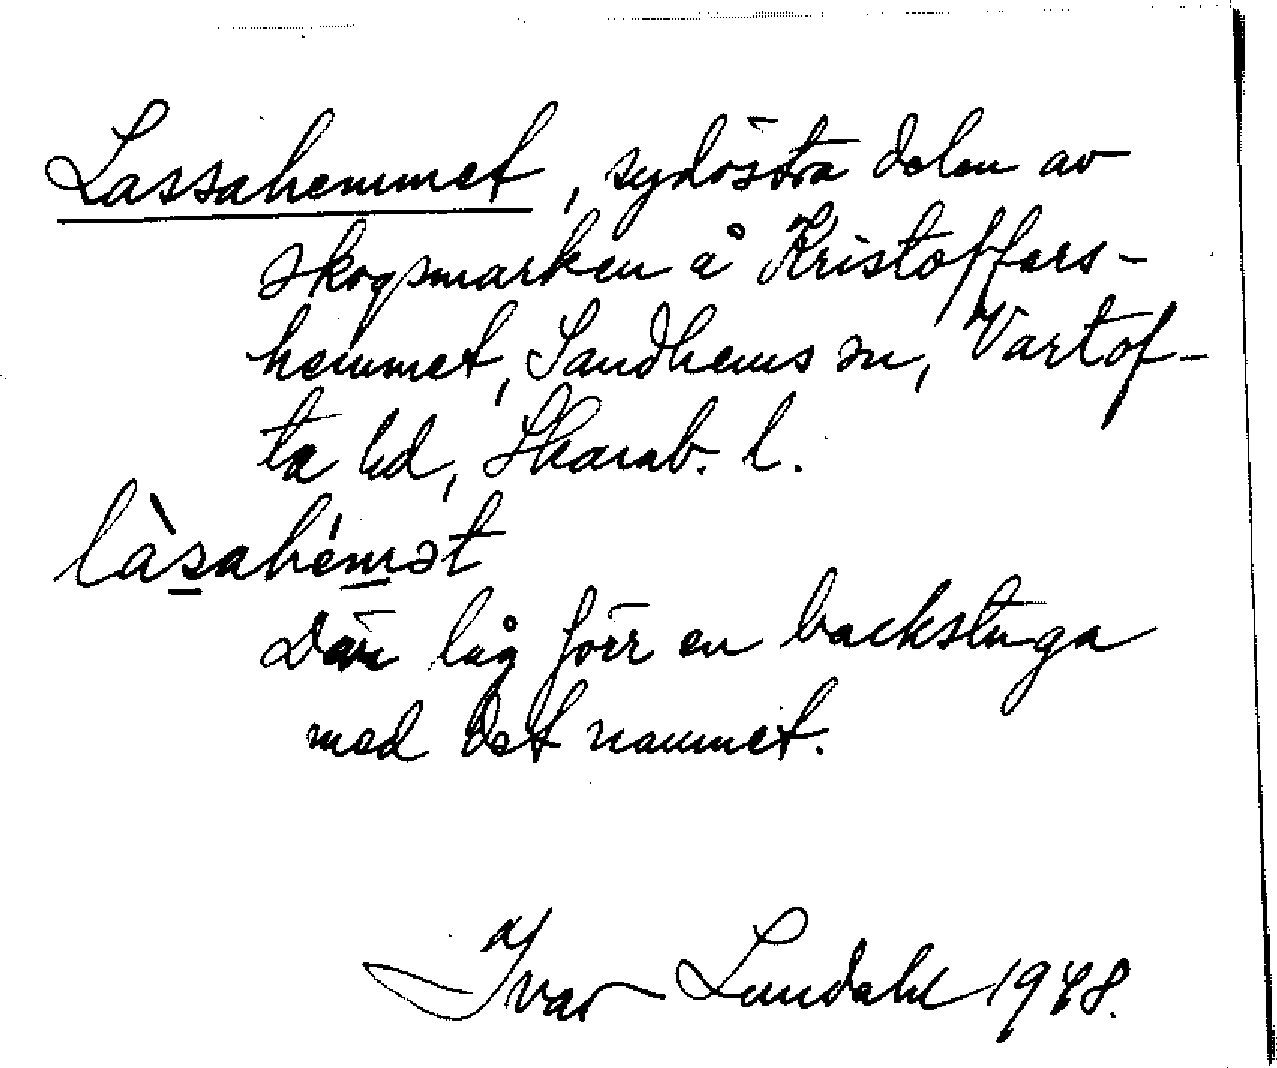 Lassahemmet, sydöstra delen av
skogsmarken å Kristoffers-
hemmet, Sandhems sn, Vartof-
ta hd, Skarab. l.
làsahémət
Där låg förr en backstuga
med det namnet.
Ivar Lundahl 1948.